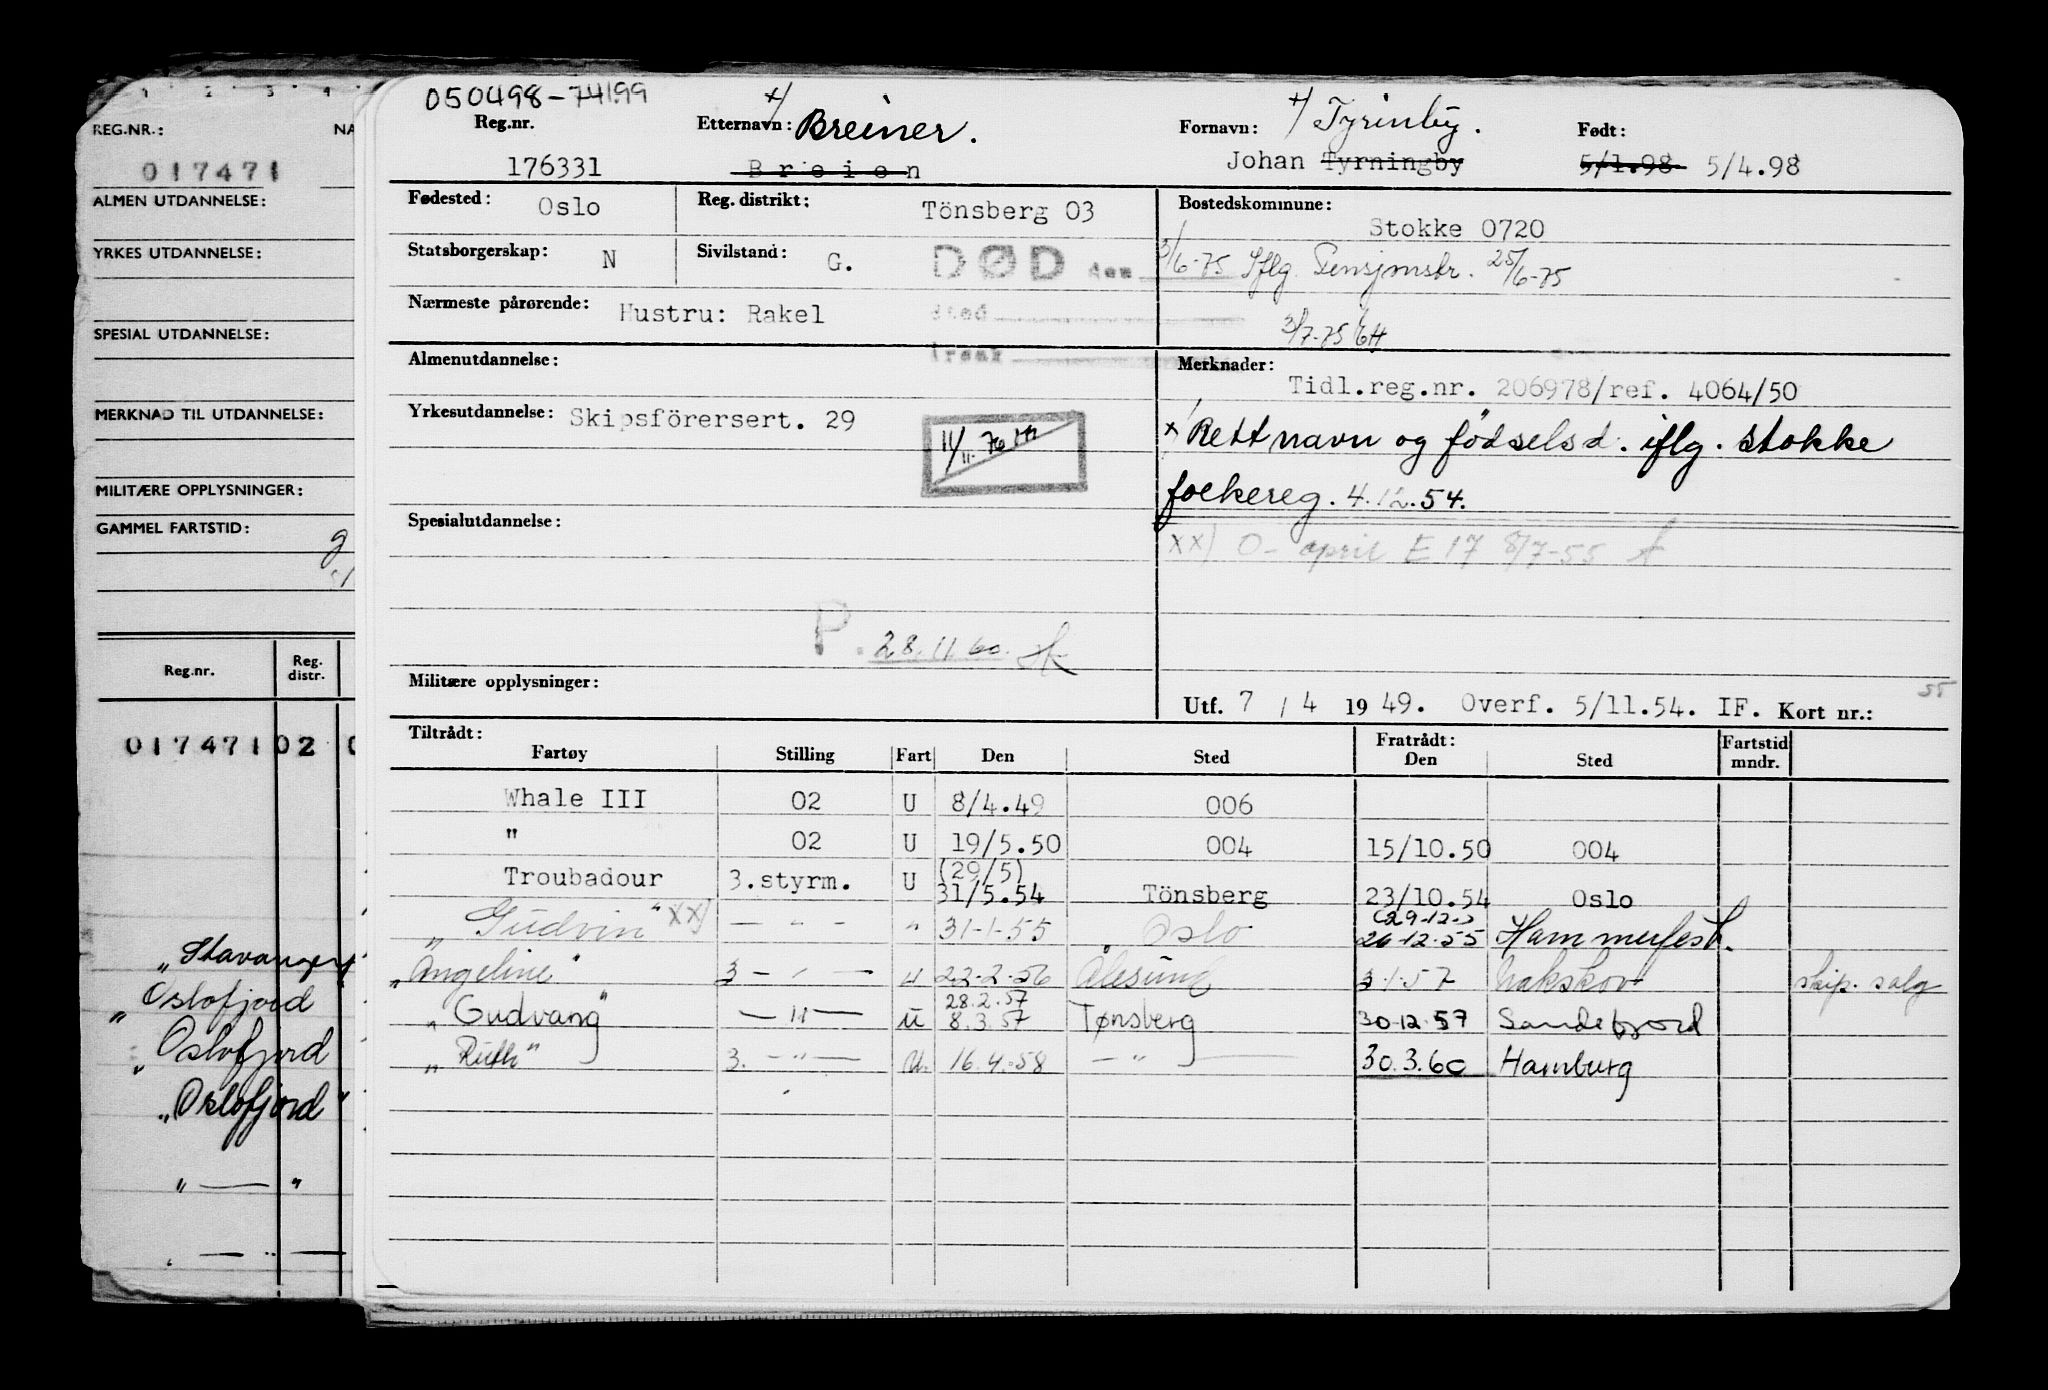 050498-74199
Reg.nr.
176331
Etternavn: x/ Breiner.
Breien
Fornavn: x/ Tyrinby.
Johan Tyrningby
Født:
5/1.98 5/4.98
Fødested: Oslo
Reg. distrikt: Tönsberg 03
Bostedskommune:
Stokke 0720
Statsborgerskap: N
Sivilstand: G.
DØD den 3/6-75 Iflg. Pensjonstr. 25/6-75
Nærmeste pårørende: Hustru: Rakel
sted
3/7-75 EH
årsak
Almenutdannelse:
Merknader:
Tidl.reg.nr. 206978/ref. 4064/50
Yrkesutdannelse: Skipsförersert. 29
11/11-76
x/ Rett navn og födselsd. iflg. Stokke
folkereg. 4.12.54.
Spesialutdannelse:
xx) O- april E 17 8/7-55
P. 28.11.60.
Militære opplysninger:
55
Utf. 7 / 4 1949. Overf. 5/11.54. IF. Kort nr.:
Tiltrådt:
Fartøy Stilling Fart Den Sted
Fratrådt:
Den Sted
Fartstid
mndr.
Whale III 02 U 8/4.49 006
" 02 U 19/5.50 004 15/10.50 004
Troubadour 3.styrm. U (29/5) 31/5.54 Tönsberg 23/10.54 Oslo
"Gudvin" xx) - " - " 31-1-55 Oslo (29-12-) 26-12-55 Hammerfest.
"Angeline" 3 - " - U 23-2-56 Ålesund 3-1-57 Nakskov skip. salg
"Gudvang" - " - U 28.2.57 8.3.57 Tønsberg 30-12-57 Sandefjord
"Ruth" 3. - " - U. 16.4.58 - " - 30.3.60 Hamburg
1 2 3 4
REG.NR.: NA
017471
ALMEN UTDANNELSE:
YRKES UTDANNELSE:
SPESIAL UTDANNELSE:
MERKNAD TIL UTDANNELSE:
MILITÆRE OPPLYSNINGER:
GAMMEL FARTSTID:
Reg.nr. Reg.
distr.
017471 02 0
"Stavangerfj
"Oslofjord
"Oslofjord
"Oslofjord"
" — "
" — " —